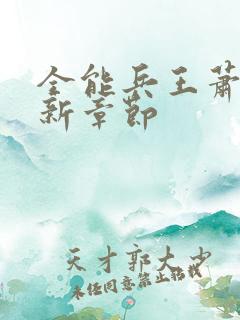 全能兵王萧
新章节
天才郭大少
未经同意禁止转载